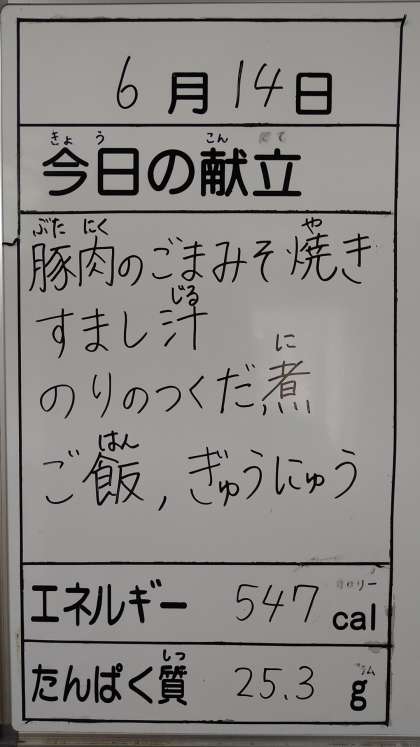 6月14日
きょう こん だて
今日の献立
ぶた にく や
豚肉のごまみそ焼き
じる
すまし汁
に
のりのつくだ煮
はん
ご飯,ぎゅうにゅう
カロリー
エネルギー 547 cal
しつ
たんぱく質 25.3 g